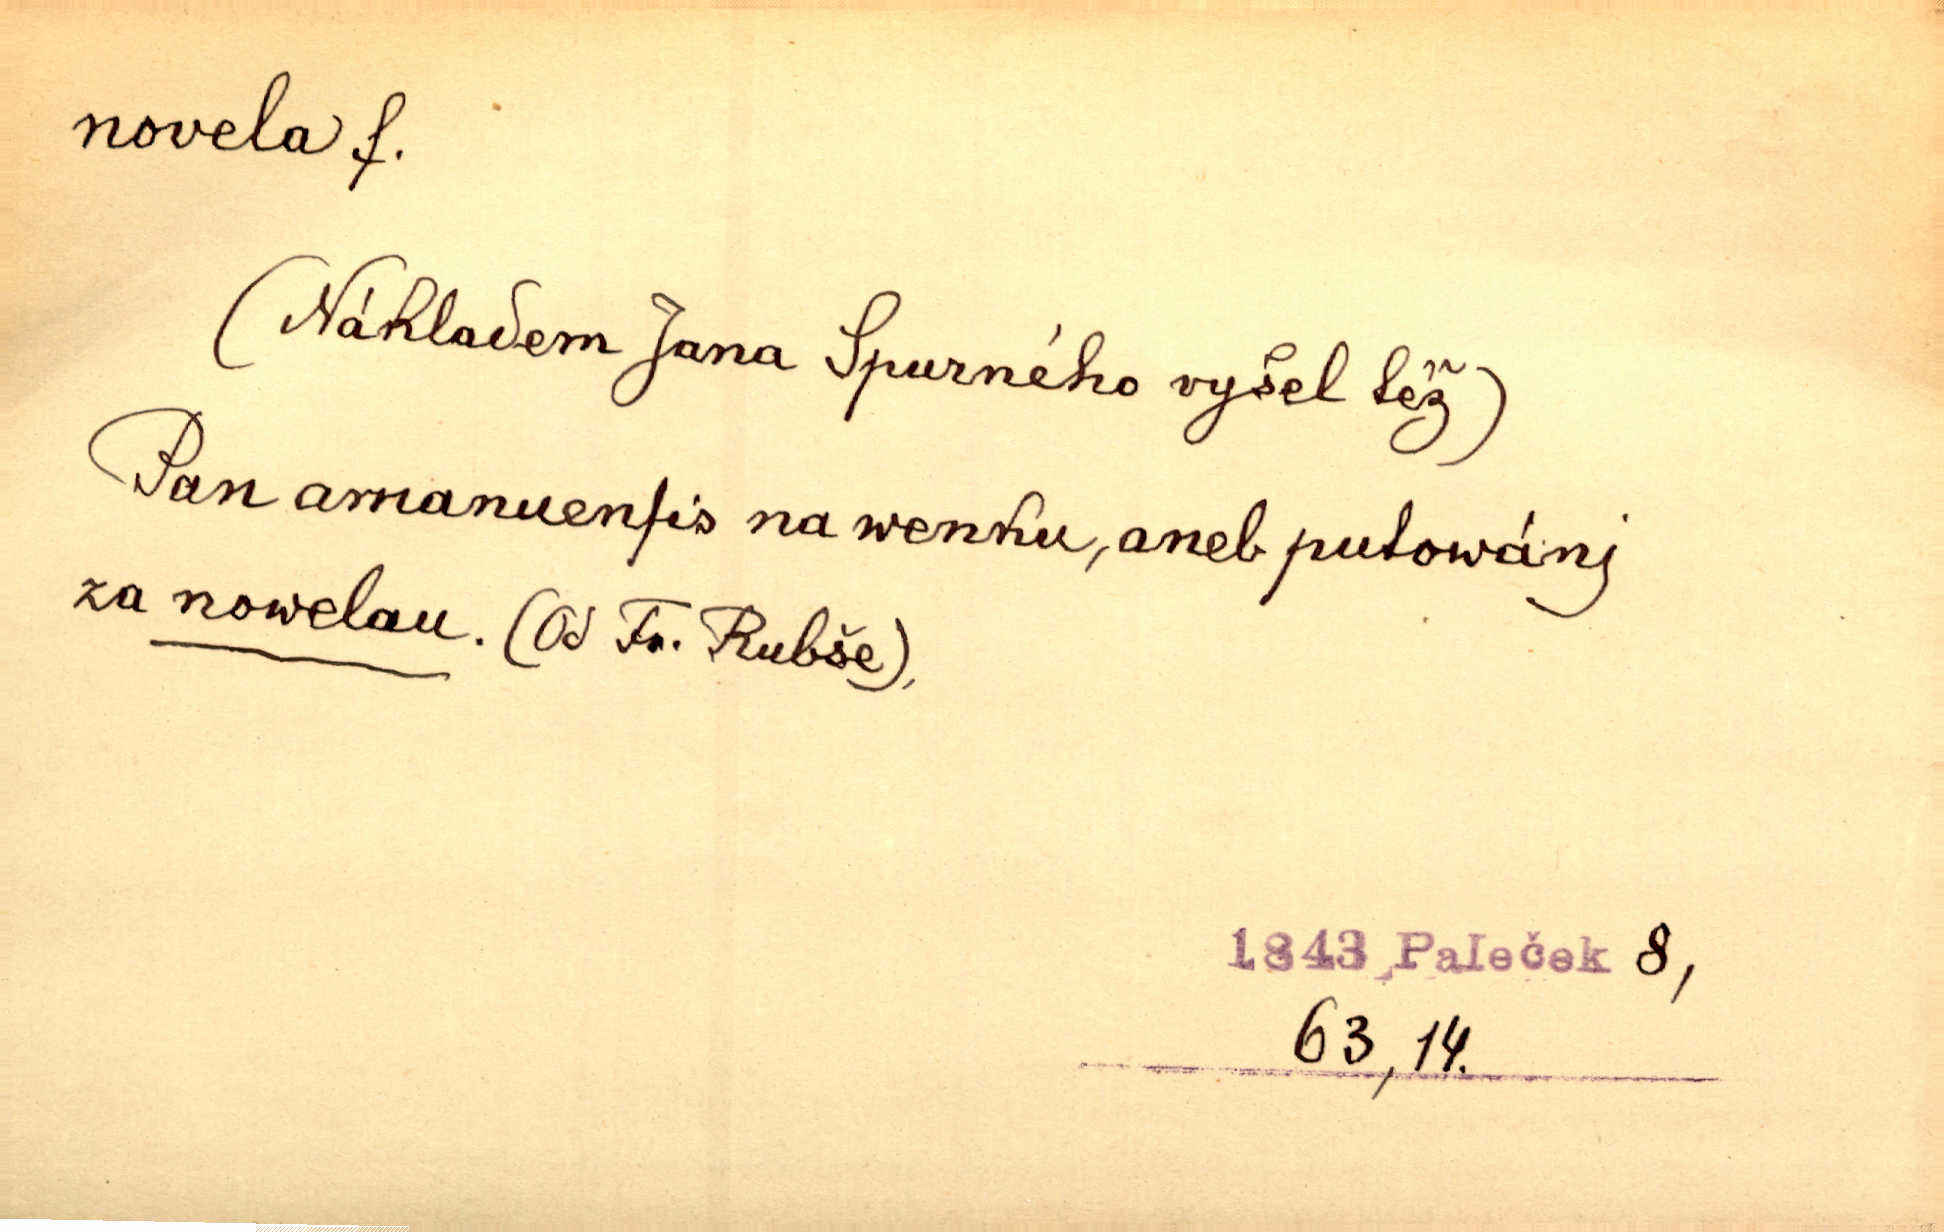 novela f.
(Nákladem Jana Spurného vyšel též)
Pan amanuenſis na wenku, aneb putowánj
za nowelau. (Od Fr. Rubše),
1843 Paleček 8,
63, 14.